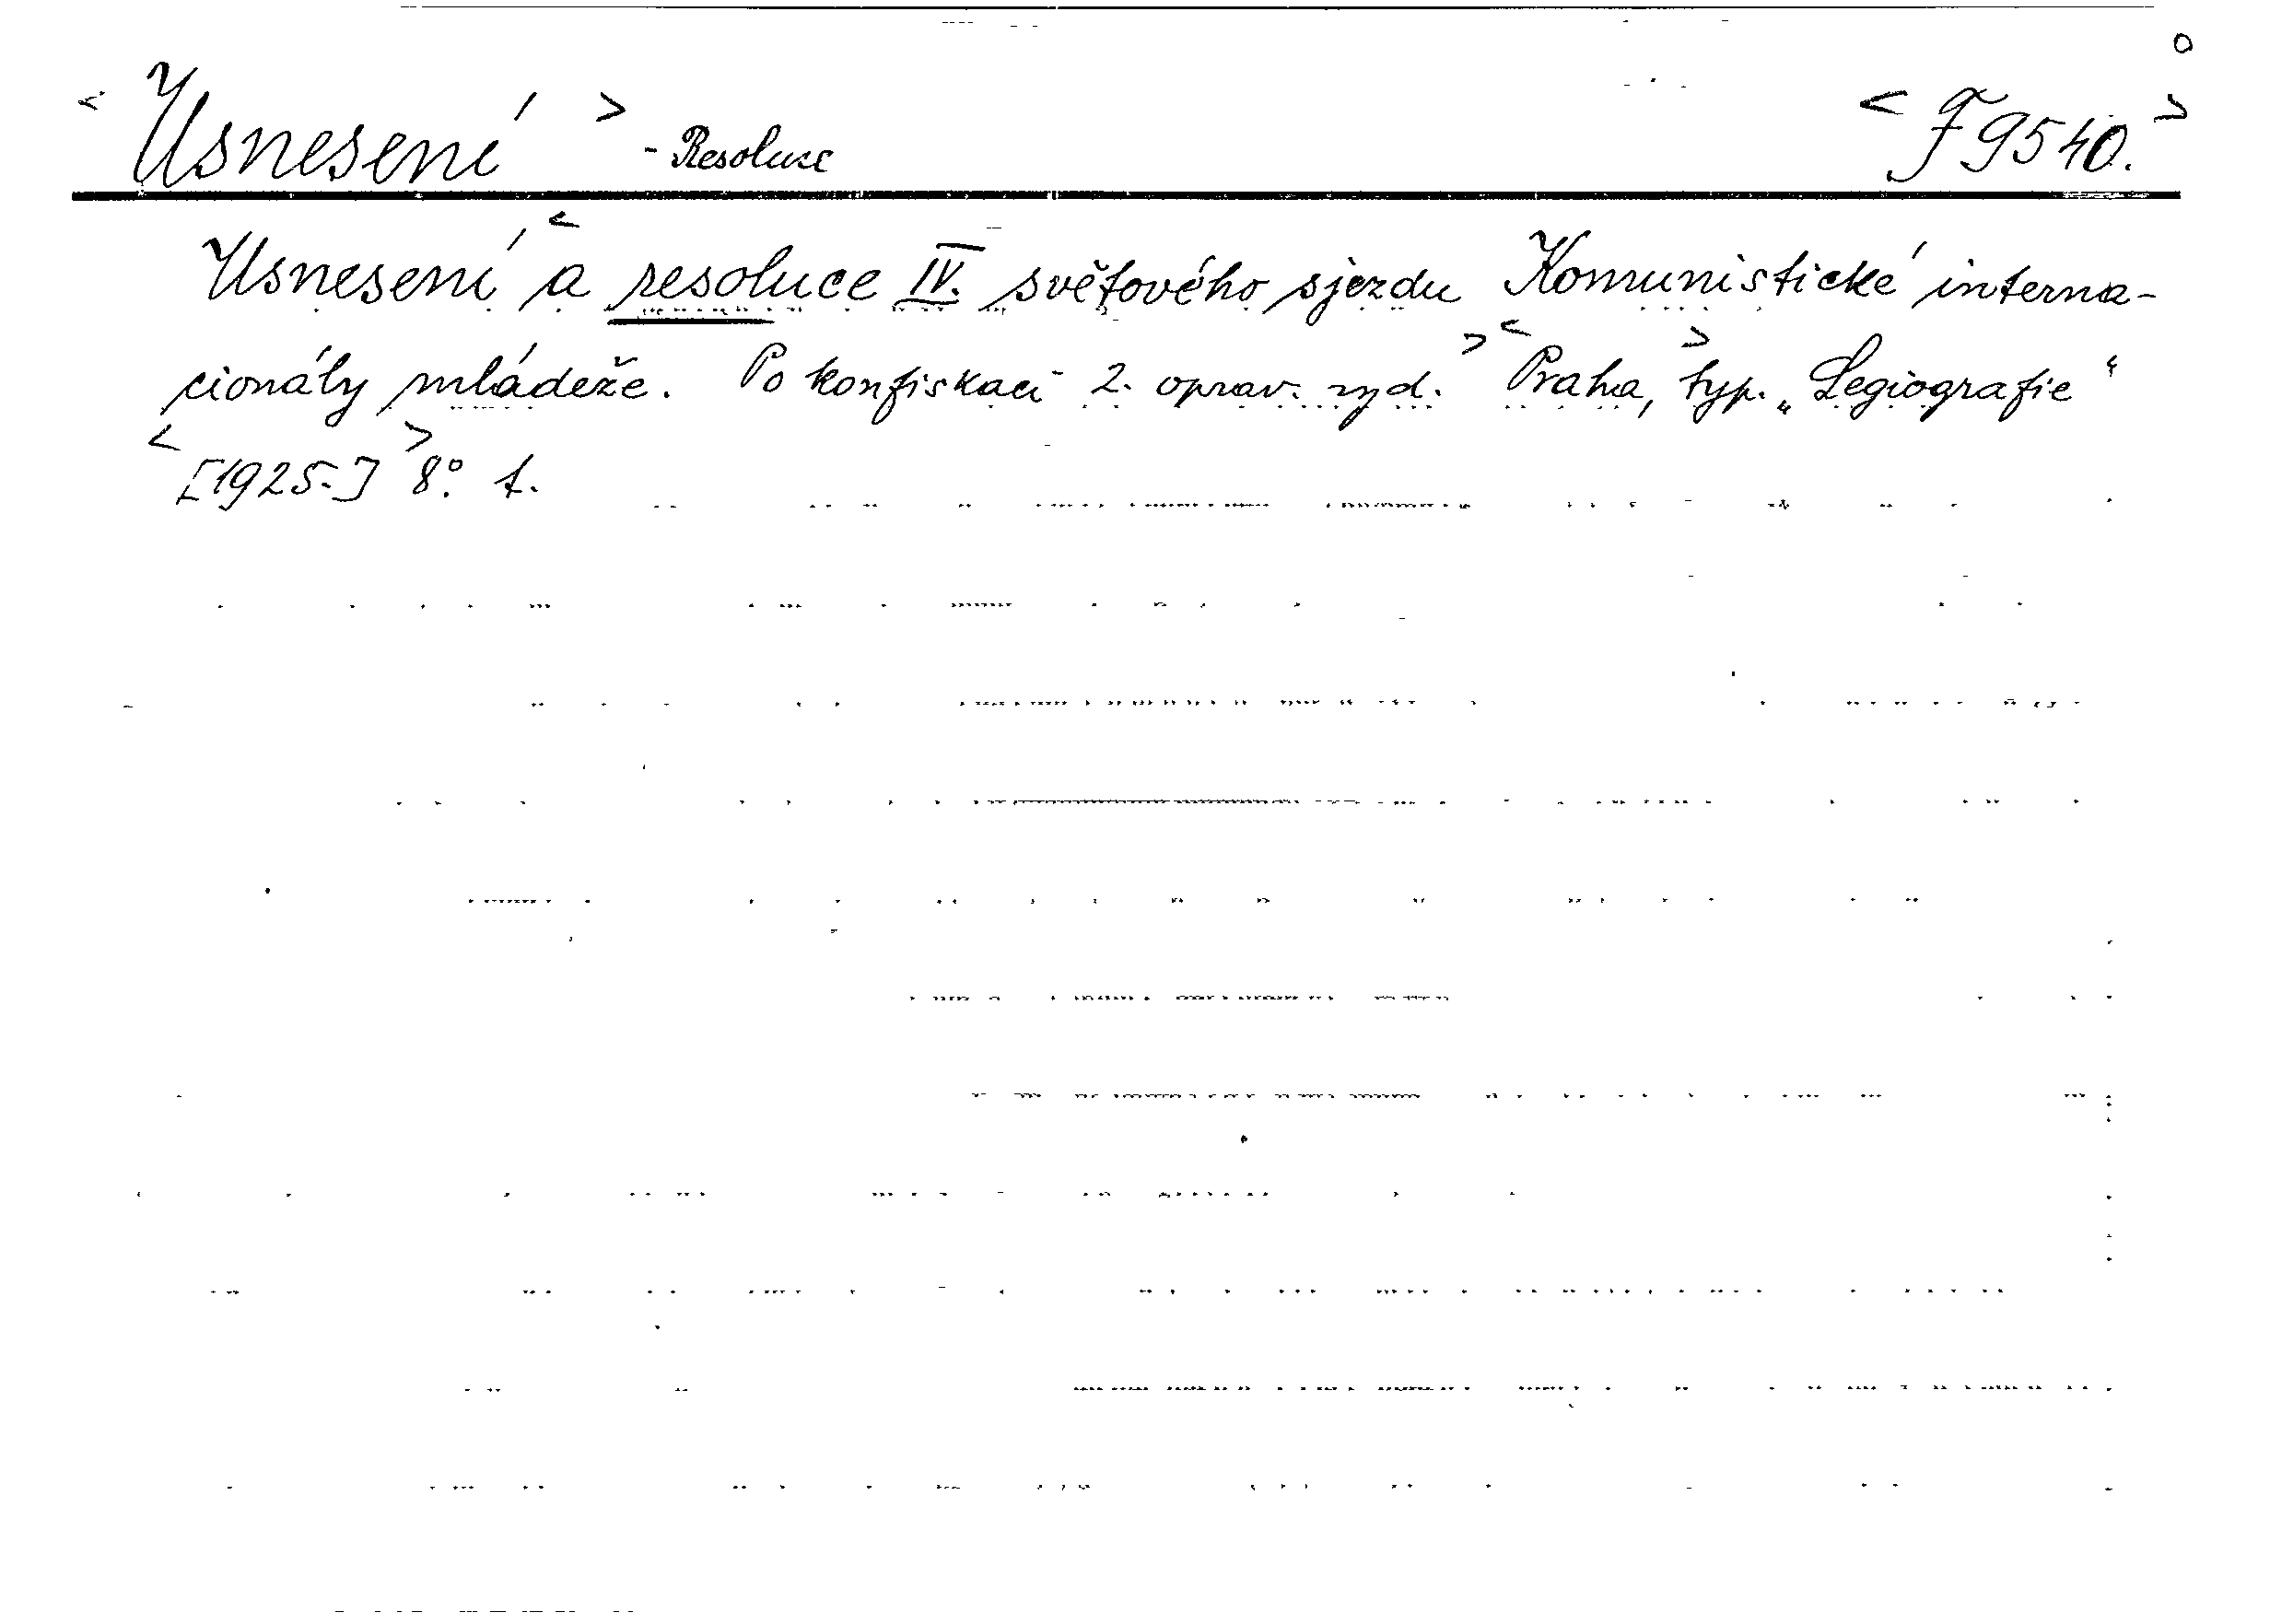 < Usnesení > - Resoluce < F 9540. >
Usnesení < a resoluce IV. světového sjezdu Komunistické interna-
cionály mládeže. Po konfiskaci 2. oprav. vyd. > < Praha, > typ. „Legiografie“
< [1925.] > 8°. t.